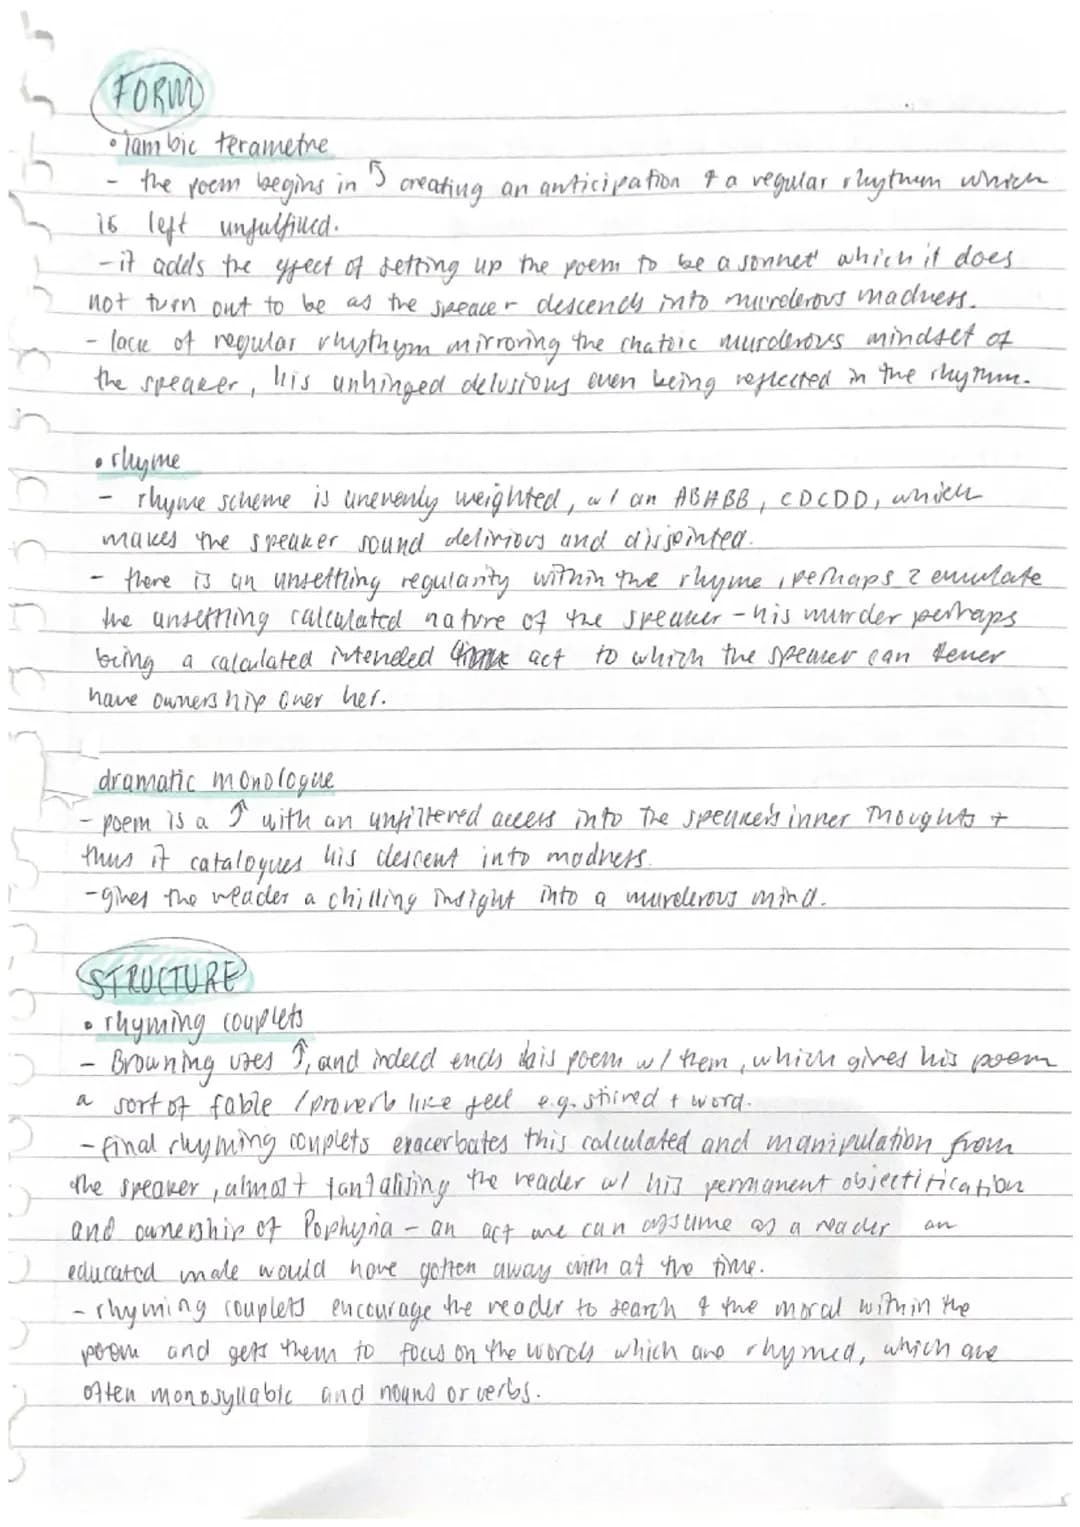 FORM
• Iambic terametre
- the poem begins in ↑ creating an anticipation 4 a regular rhythum which
is left unfulfilled.
- it adds the effect of setting up the poem to be a sonnet which it does
not turn out to be as the speacer descends into murderous madness.
- lack of regular rhythym mirroring the chatoic murderous mindset of
the speaker, his unhinged delusions even being reflected in the rhythm.
• rhyme
- rhyme scheme is unevenly weighted, w/ an ABABB, CDCDD, which
makes the speaker sound delirious and disjointed.
- there is an unsettling regularity within the rhyme, perhaps 2 emulate
the unsettling calculated nature of the speaker - his murder perhaps
being a calculated intended act to which the speaker can
have ownership over her.
dramatic monologue
- poem is a ↑ with an unfiltered access into the speaker's inner thoughts +
thus it catalogues his descent into madness.
- gives the reader a chilling insight into a murderous mind.
STRUCTURE
• rhyming couplets
- Browning uses ↑, and indeed ends his poem w/ them, which gives his poem
a sort of fable / proverb like feel e.g. stired + word.
- final rhyming couplets exacerbates this calculated and manipulation from
the speaker, almost tantalising the reader w/ his permanent objectification
and ownership of Pophyria - an act we can assume as a reader an
educated male would have gotten away with at the time.
- rhyming couplets encourage the reader to search 4 the moral within the
poem and gets them to focus on the words which are rhymed, which are
often monosyllabic and nouns or verbs.